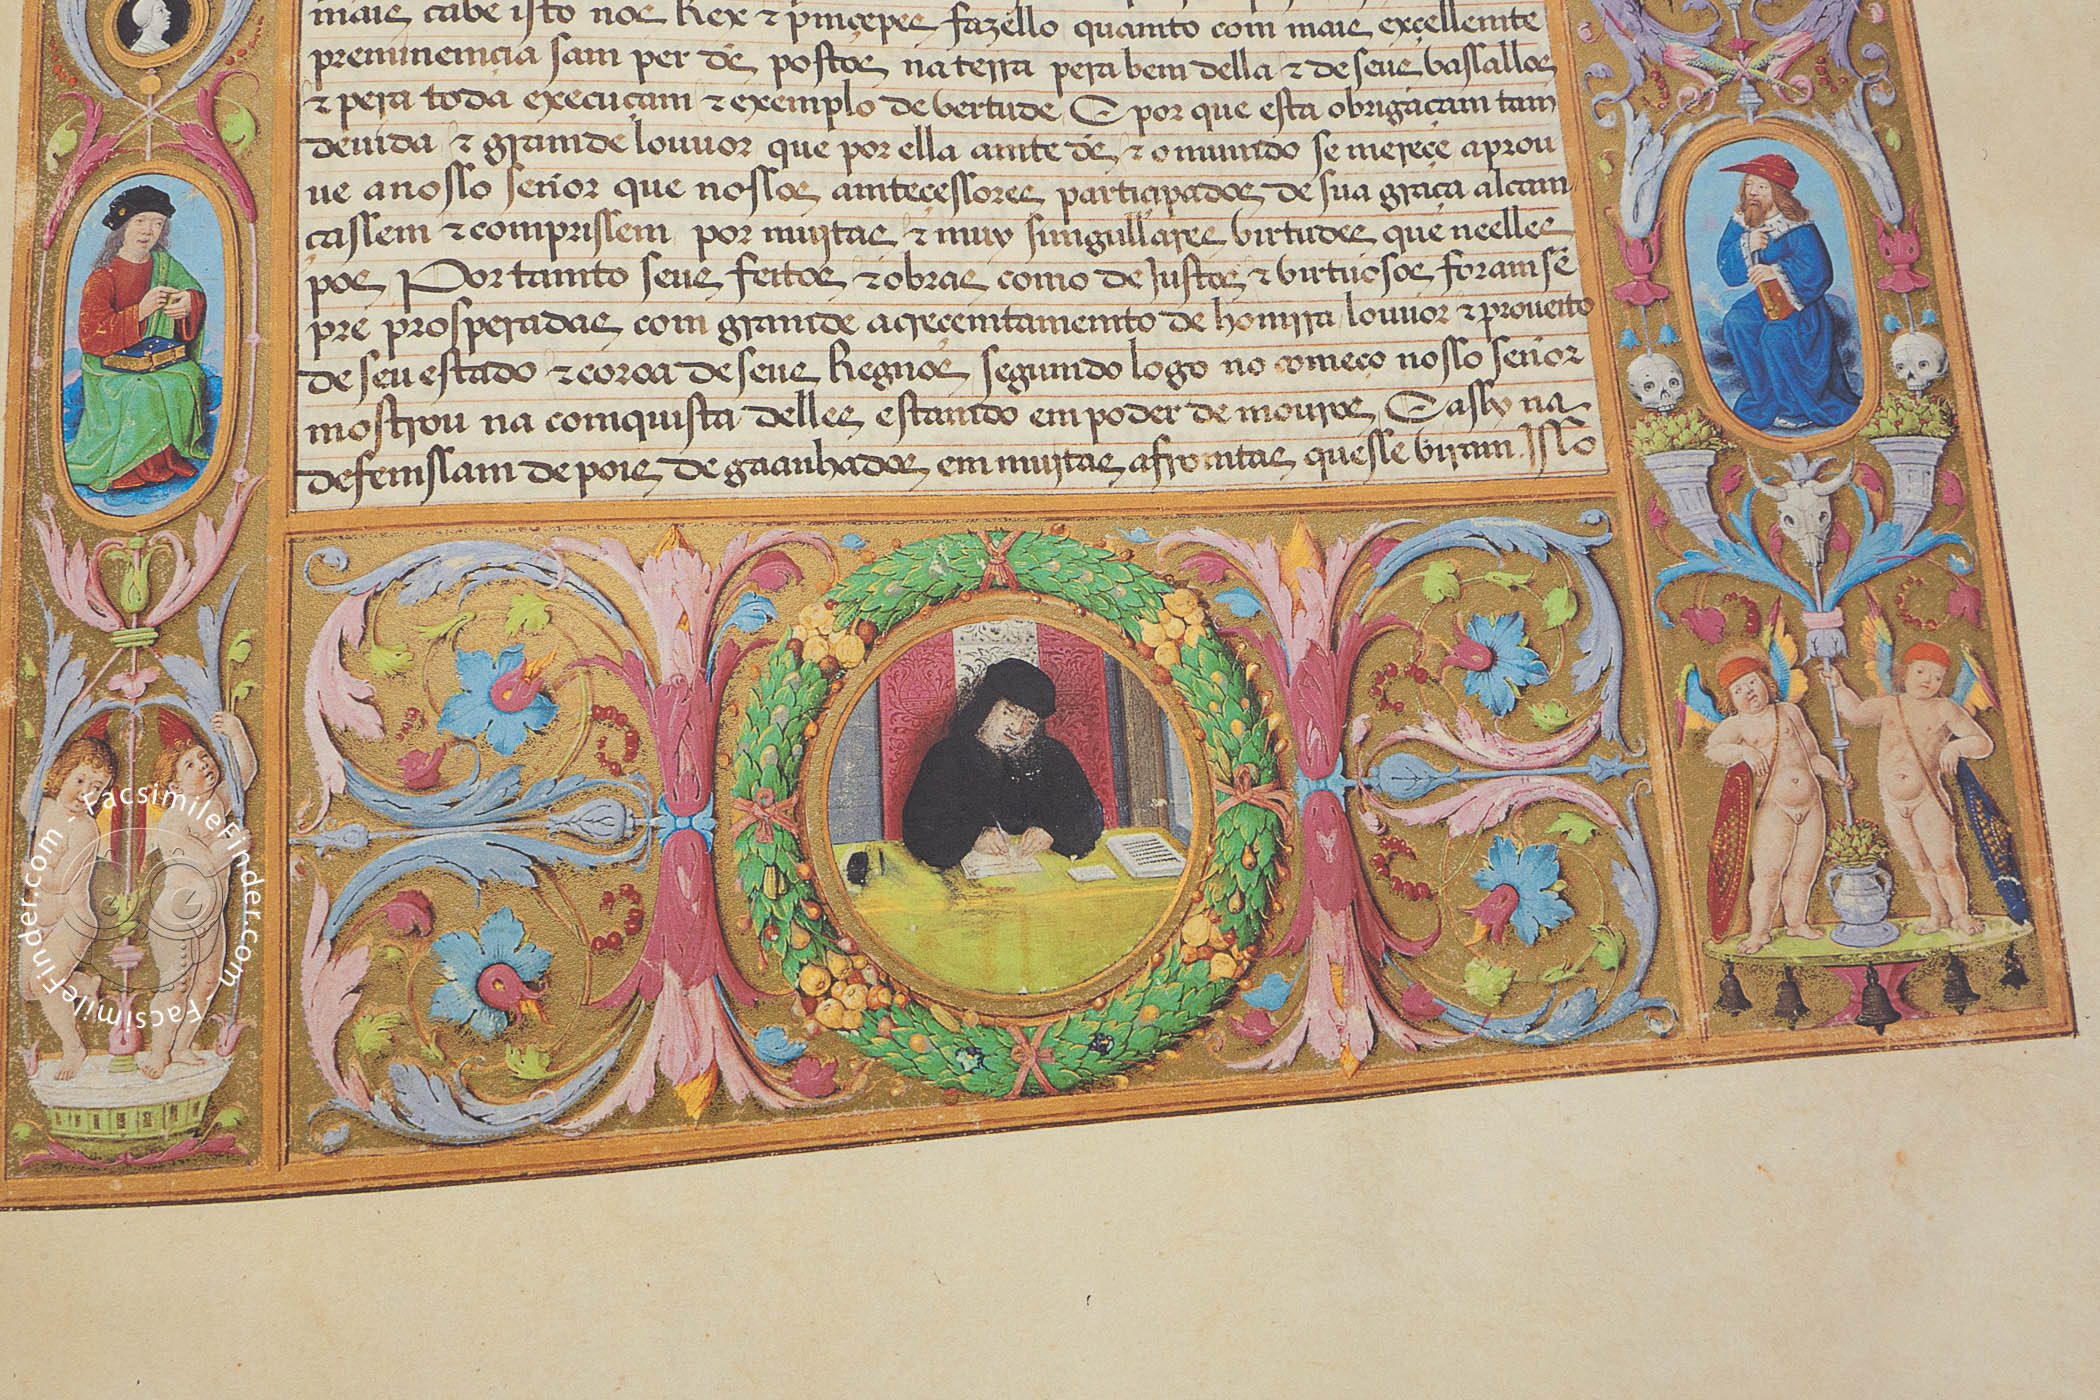 mais cabe isto nos Rex ⁊ prinçepes fazello quamto com mais exçellemte
preminemcia sam per dẽ postos na terra pera bem della ⁊ de seus bassallos
⁊ pera toda execuçam ⁊ exemplo de bertude E por que esta obrigaçam tam
deuida ⁊ gramde louuor que por ella amte dẽ ⁊ o mumdo se mereçe aprou
ue a nosso señor que nossos amteçessores participados de sua graça alcam
çassem ⁊ comprissem por muytas ⁊ muy simgullares birtudes que neelles
pos Por tamto seus feitos ⁊ obras como de Justos ⁊ birtuosos foram sẽ
pre prosperadas com gramde acreçemtamemto de homrra louuor ⁊ proueito
de seu estado ⁊ coroa de seus Regnos segumdo logo no começo nosso señor
mostrou na comquista delles estamdo em poder de mouros E assy na
defemssam depois de gaanhados em muytas afromtas quesse biram. Isso
FacsimileFinder.com - FacsimileFinder.com -